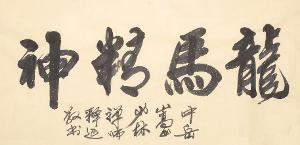 龍馬精神
中岳
嵩山
少林
禅师
释延